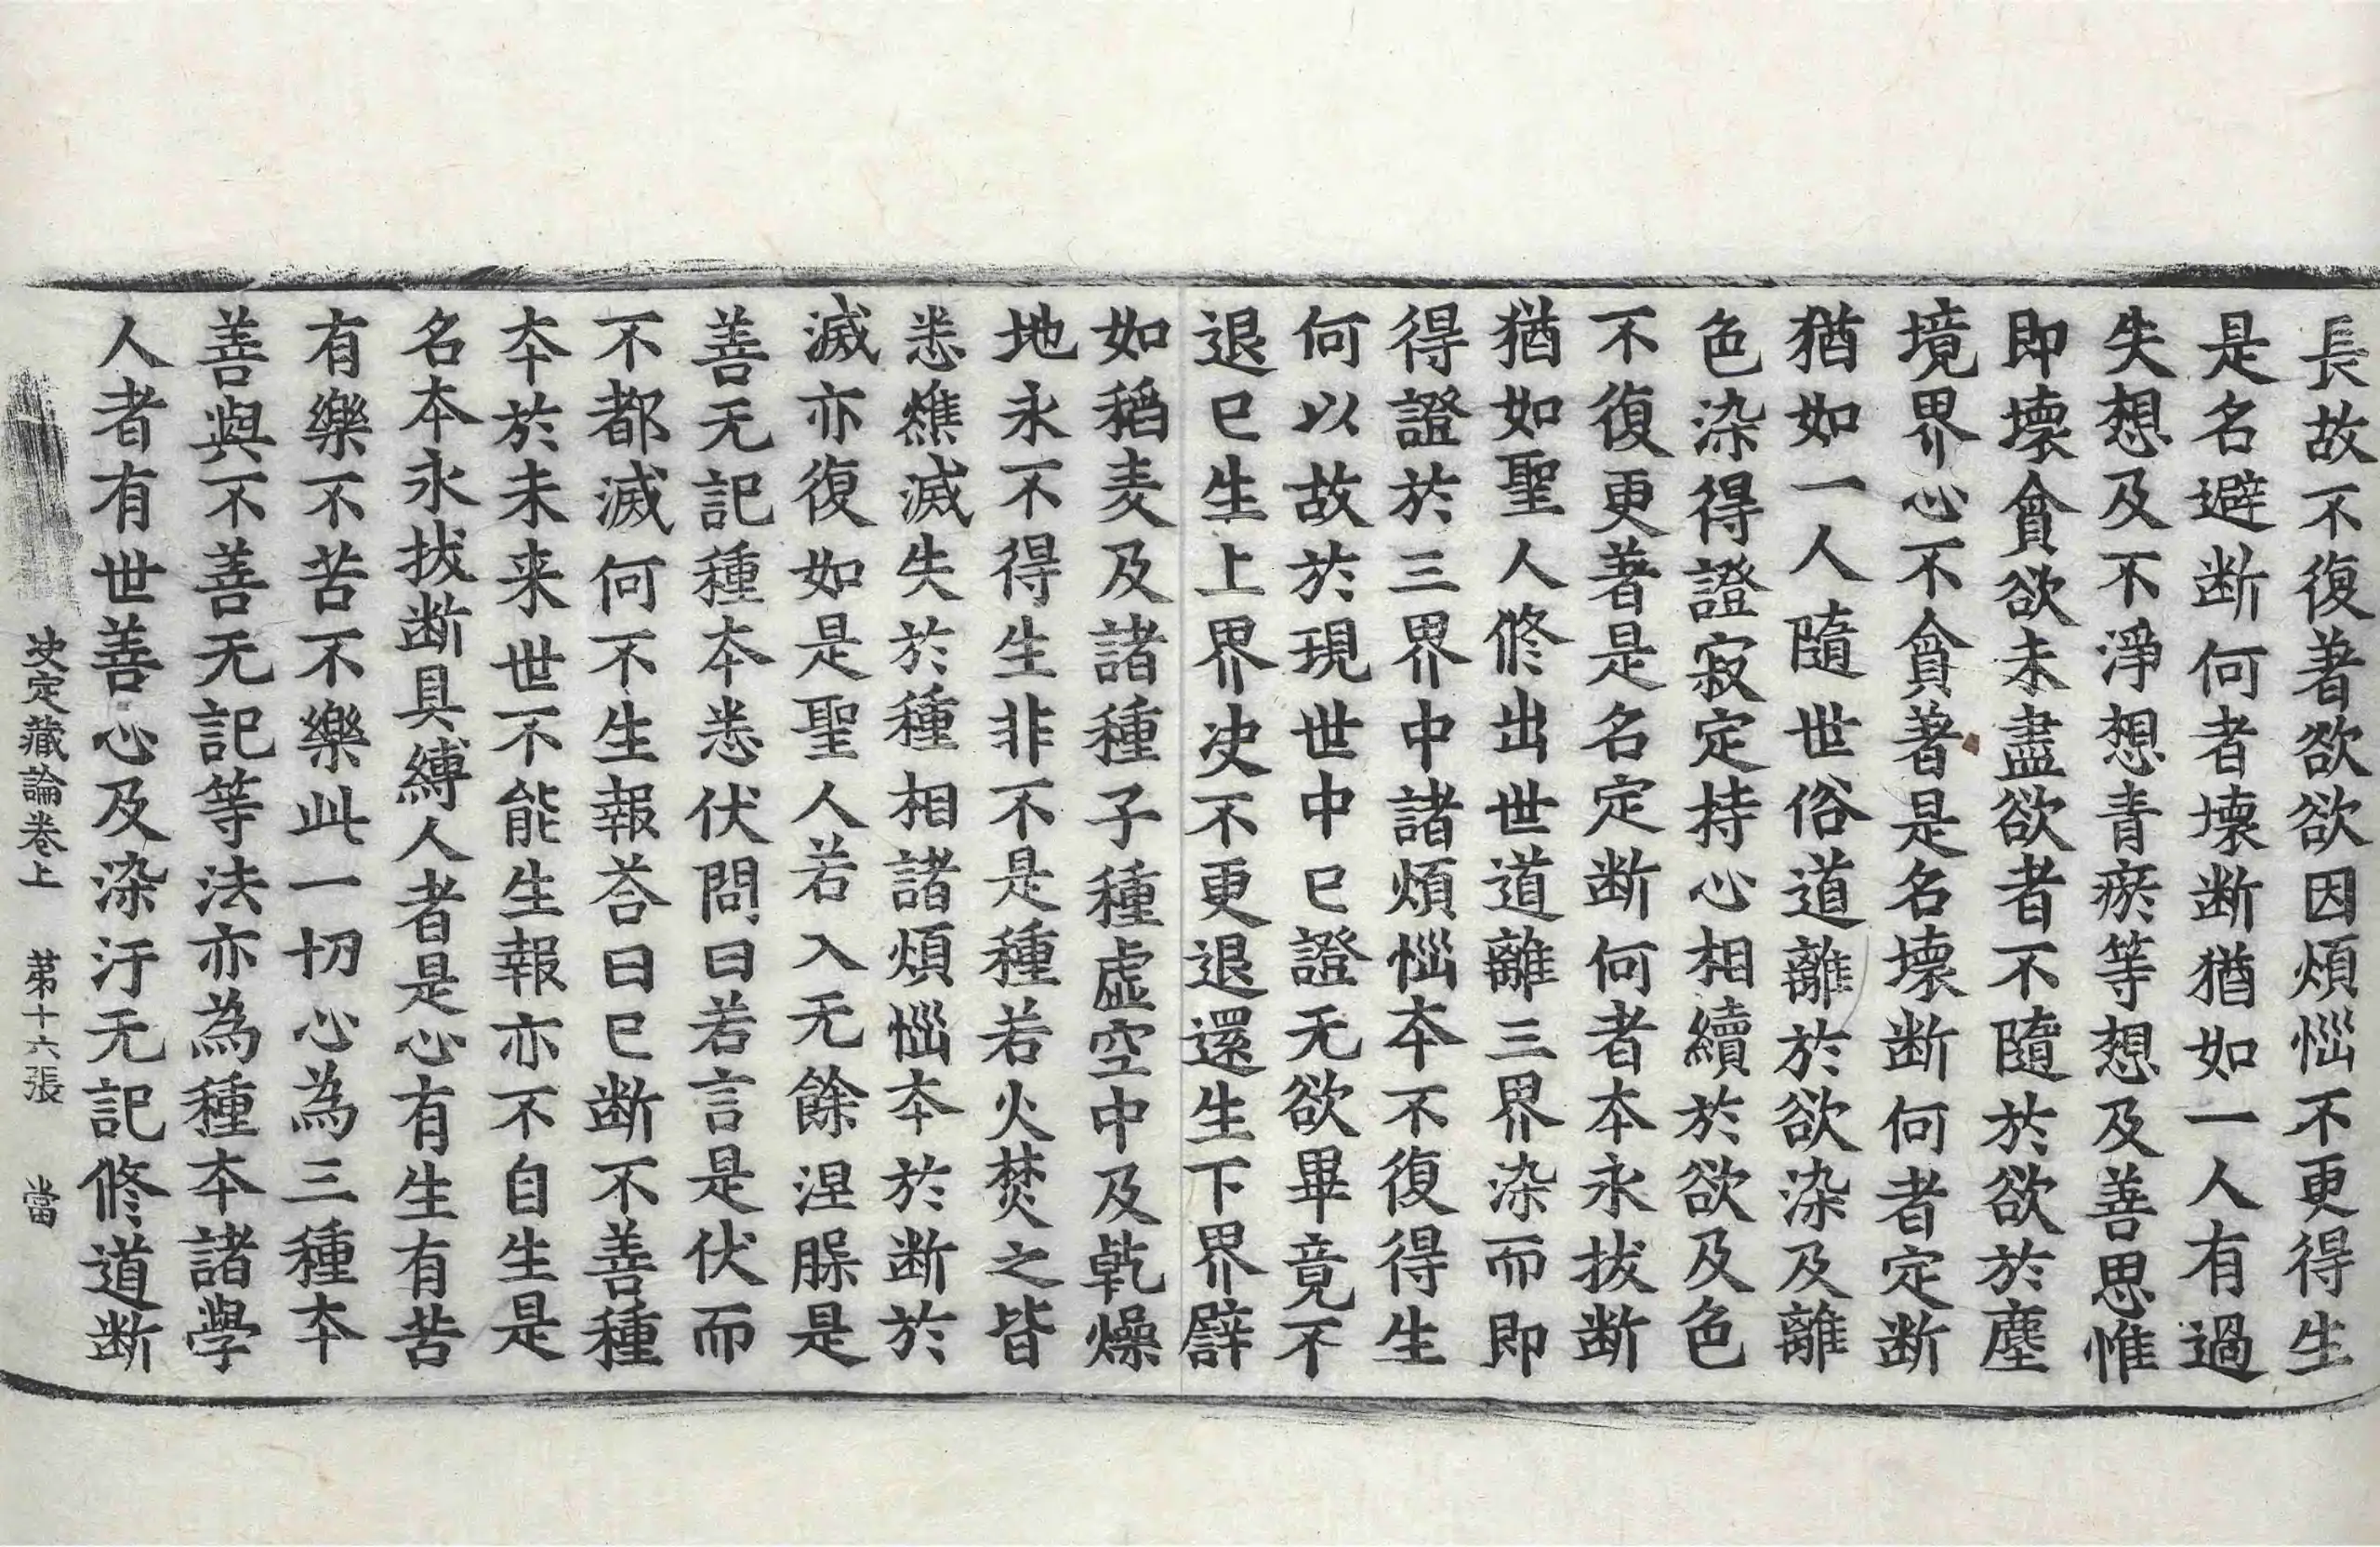 長故不復著欲欲因煩惱不更得生
是名避断何者壞断猶如一人有過
失想及不淨想青瘀等想及善思惟
即壞貪欲未盡欲者不隨於欲於塵
境界心不貪著是名壞断何者定断
猶如一人隨世俗道離於欲染及離
色染得證寂定持心相續於欲及色
不復更著是名定断何者夲永拔断
猶如聖人修出世道離三界染而即
得證於三界中諸煩惱夲不復得生
何以故於現世中已證无欲畢竟不
退已生上界决不更退還生下界譬
如稻麦及諸種子種虛空中及乾燥
地永不得生非不是種若火焚之皆
悉燋滅失於種相諸煩惱夲於断於
滅亦復如是聖人若入无餘涅槃是
善无記種夲悉伏問曰若言是伏而
不都滅何不生報荅曰已断不善種
夲於未来世不能生報亦不自生是
名夲永拔断具縛人者是心有生有苦
有樂不苦不樂此一切心為三種夲
善與不善无記等法亦為種夲諸學
人者有世善心及染汙无記修道断
决定藏論卷上 第十六張 當